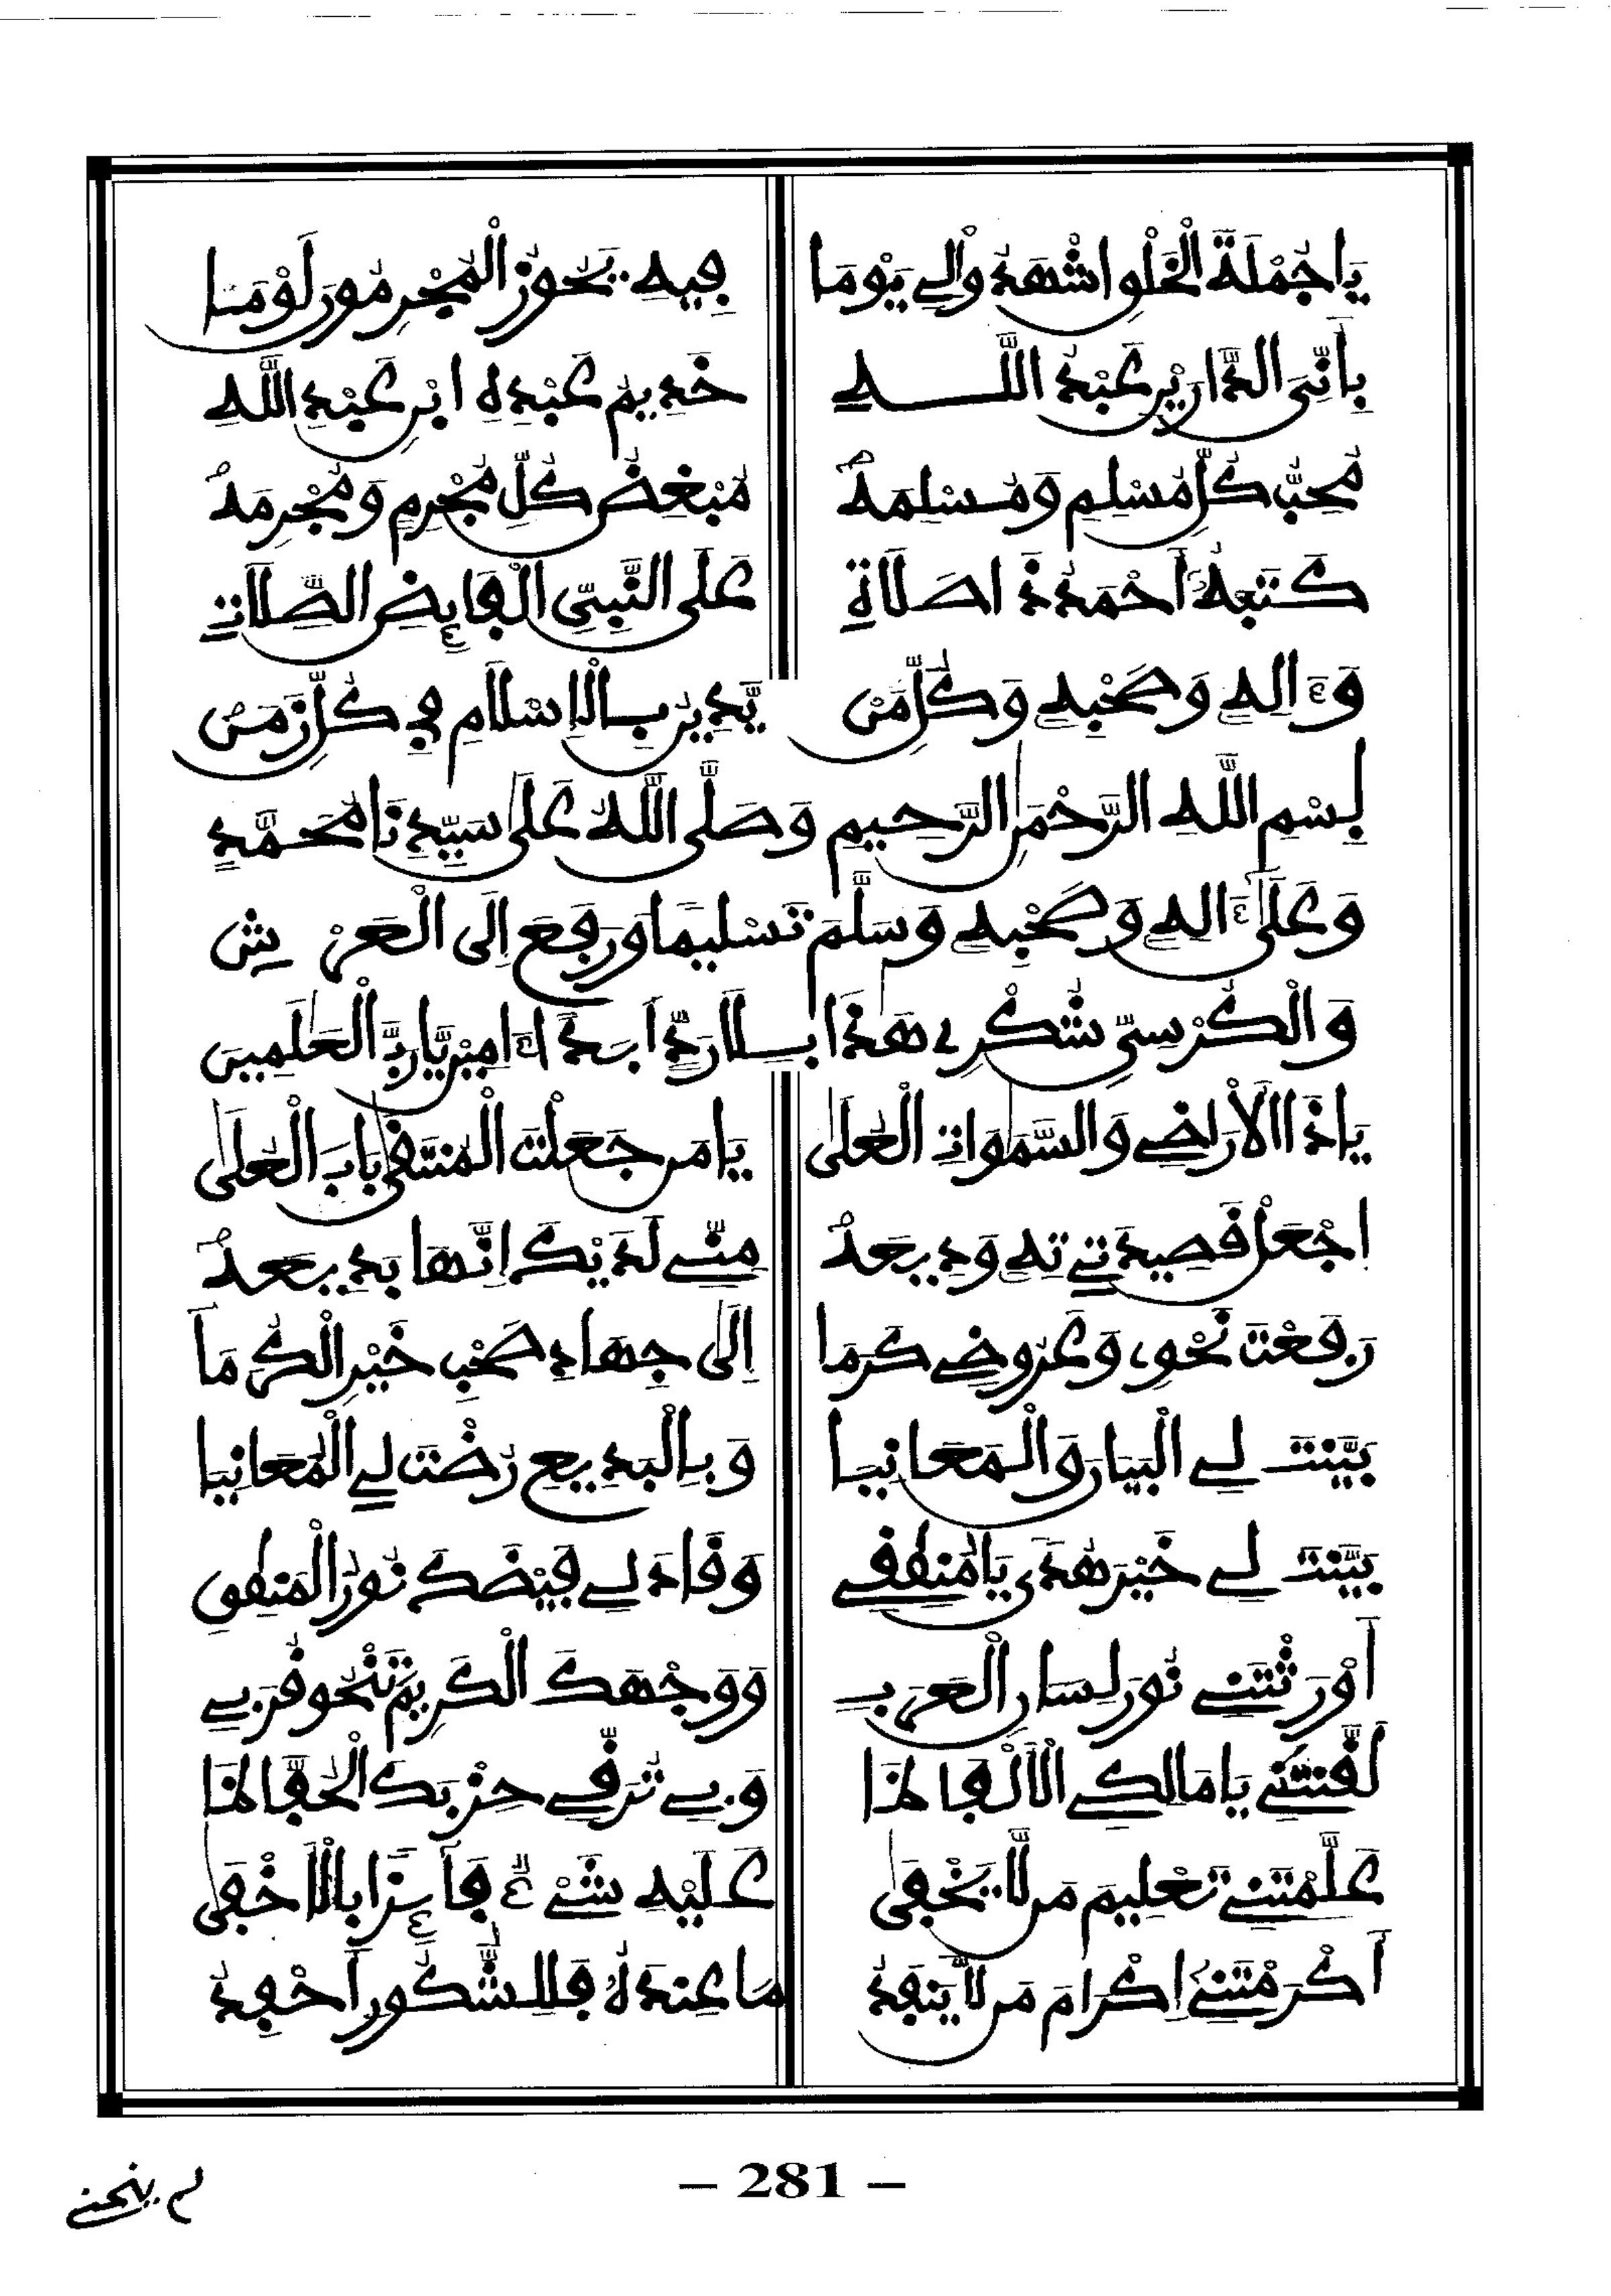 يَا جُمْلَةَ الْخَلْقِ اشْهَدُوا لِي يَوْمَا فِيهِ يَحُوزُ الْمُجْرِمُونَ لَوْمَا
بِأَنَّنِي الدَّارَيْنِ عَبْدُ اللَّهِ خَدِيمُ عَبْدِهِ ابْنِ عَبْدِ اللَّهِ
مُحِبُّ كُلِّ مُسْلِمٍ وَمُسْلِمَهْ مُبْغِضُ كُلِّ مُجْرِمٍ وَمُجْرِمَهْ
كَتَبَهُ أَحْمَدُ ذَا صَلَاةِ عَلَى النَّبِيِّ الْفَائِضِ الصَّلَاتِ
وَءَالِهِ وَصَحْبِهِ وَكُلِّ مَنْ يَدِينُ بِالْإِسْلَامِ فِي كُلِّ زَمَنْ
بِسْمِ اللَّهِ الرَّحْمَنِ الرَّحِيمِ وَصَلَّى اللَّهُ عَلَى سَيِّدِنَا مُحَمَّدٍ
وَعَلَى ءَالِهِ وَصَحْبِهِ وَسَلَّمَ تَسْلِيمًا وَرَفَعَ إِلَى الْعَرْشِ
وَالْكُرْسِيِّ شُكْرِي هَذَا بِلَا رَدٍّ أَبَدًا ءَامِينَ يَا رَبَّ الْعَلَمِينَ
يَا ذَا الْأَرَاضِي وَالسَّمَوَاتِ الْعُلَى يَا مَنْ جَعَلْتَ الْمُنتَقَى بَابَ الْعُلَى
اجْعَلْ قَصِيدَتِي تِهِ وَدِيعَهْ مِنِّي لَدَيْكَ إِنَّهَا بَدِيعَهْ
رَفَعْتَ نَحْوِي وَعَرُوضِي كَرَمَا إِلَى جِهَادِ صَحْبِ خَيْرِ الْكُرَمَا
بَيَّنتَ لِي الْبَيَانَ وَالْمَعَانِيَا وَبِالْبَدِيعِ رُضْتَ لِي الْمُعَانِيَا
بَيَّنتَ لِي خَيْرَ هُدًى يَا مُنطِقِي وَقَادَ لِي فَيْضُكَ نُورَ الْمَنطِقِ
أَوْرَثْتَنِي نُورَ لِسَانِ الْعَرَبِ وَوَجْهَكَ الْكَرِيمَ تَنْحُو قُرَبِي
لَقَّنتَنِي يَا مَالِكِي الْأَلْفَاظَا وَبِي تُرَقِّي حِزْبَكَ الْحُفَّاظَا
عَلَّمْتَنِي تَعْلِيمَ مَن لَّا يَخْفَى عَلَيْهِ شَيْءٌ فَائِزًا بِالْأَخْفَى
أَكْرَمْتَنِي إِكْرَامَ مَن لَّا يَنفَدُ مَا عِندَهُ فَلِلشَّكُورِ أَحْفِدُ
– 281 –